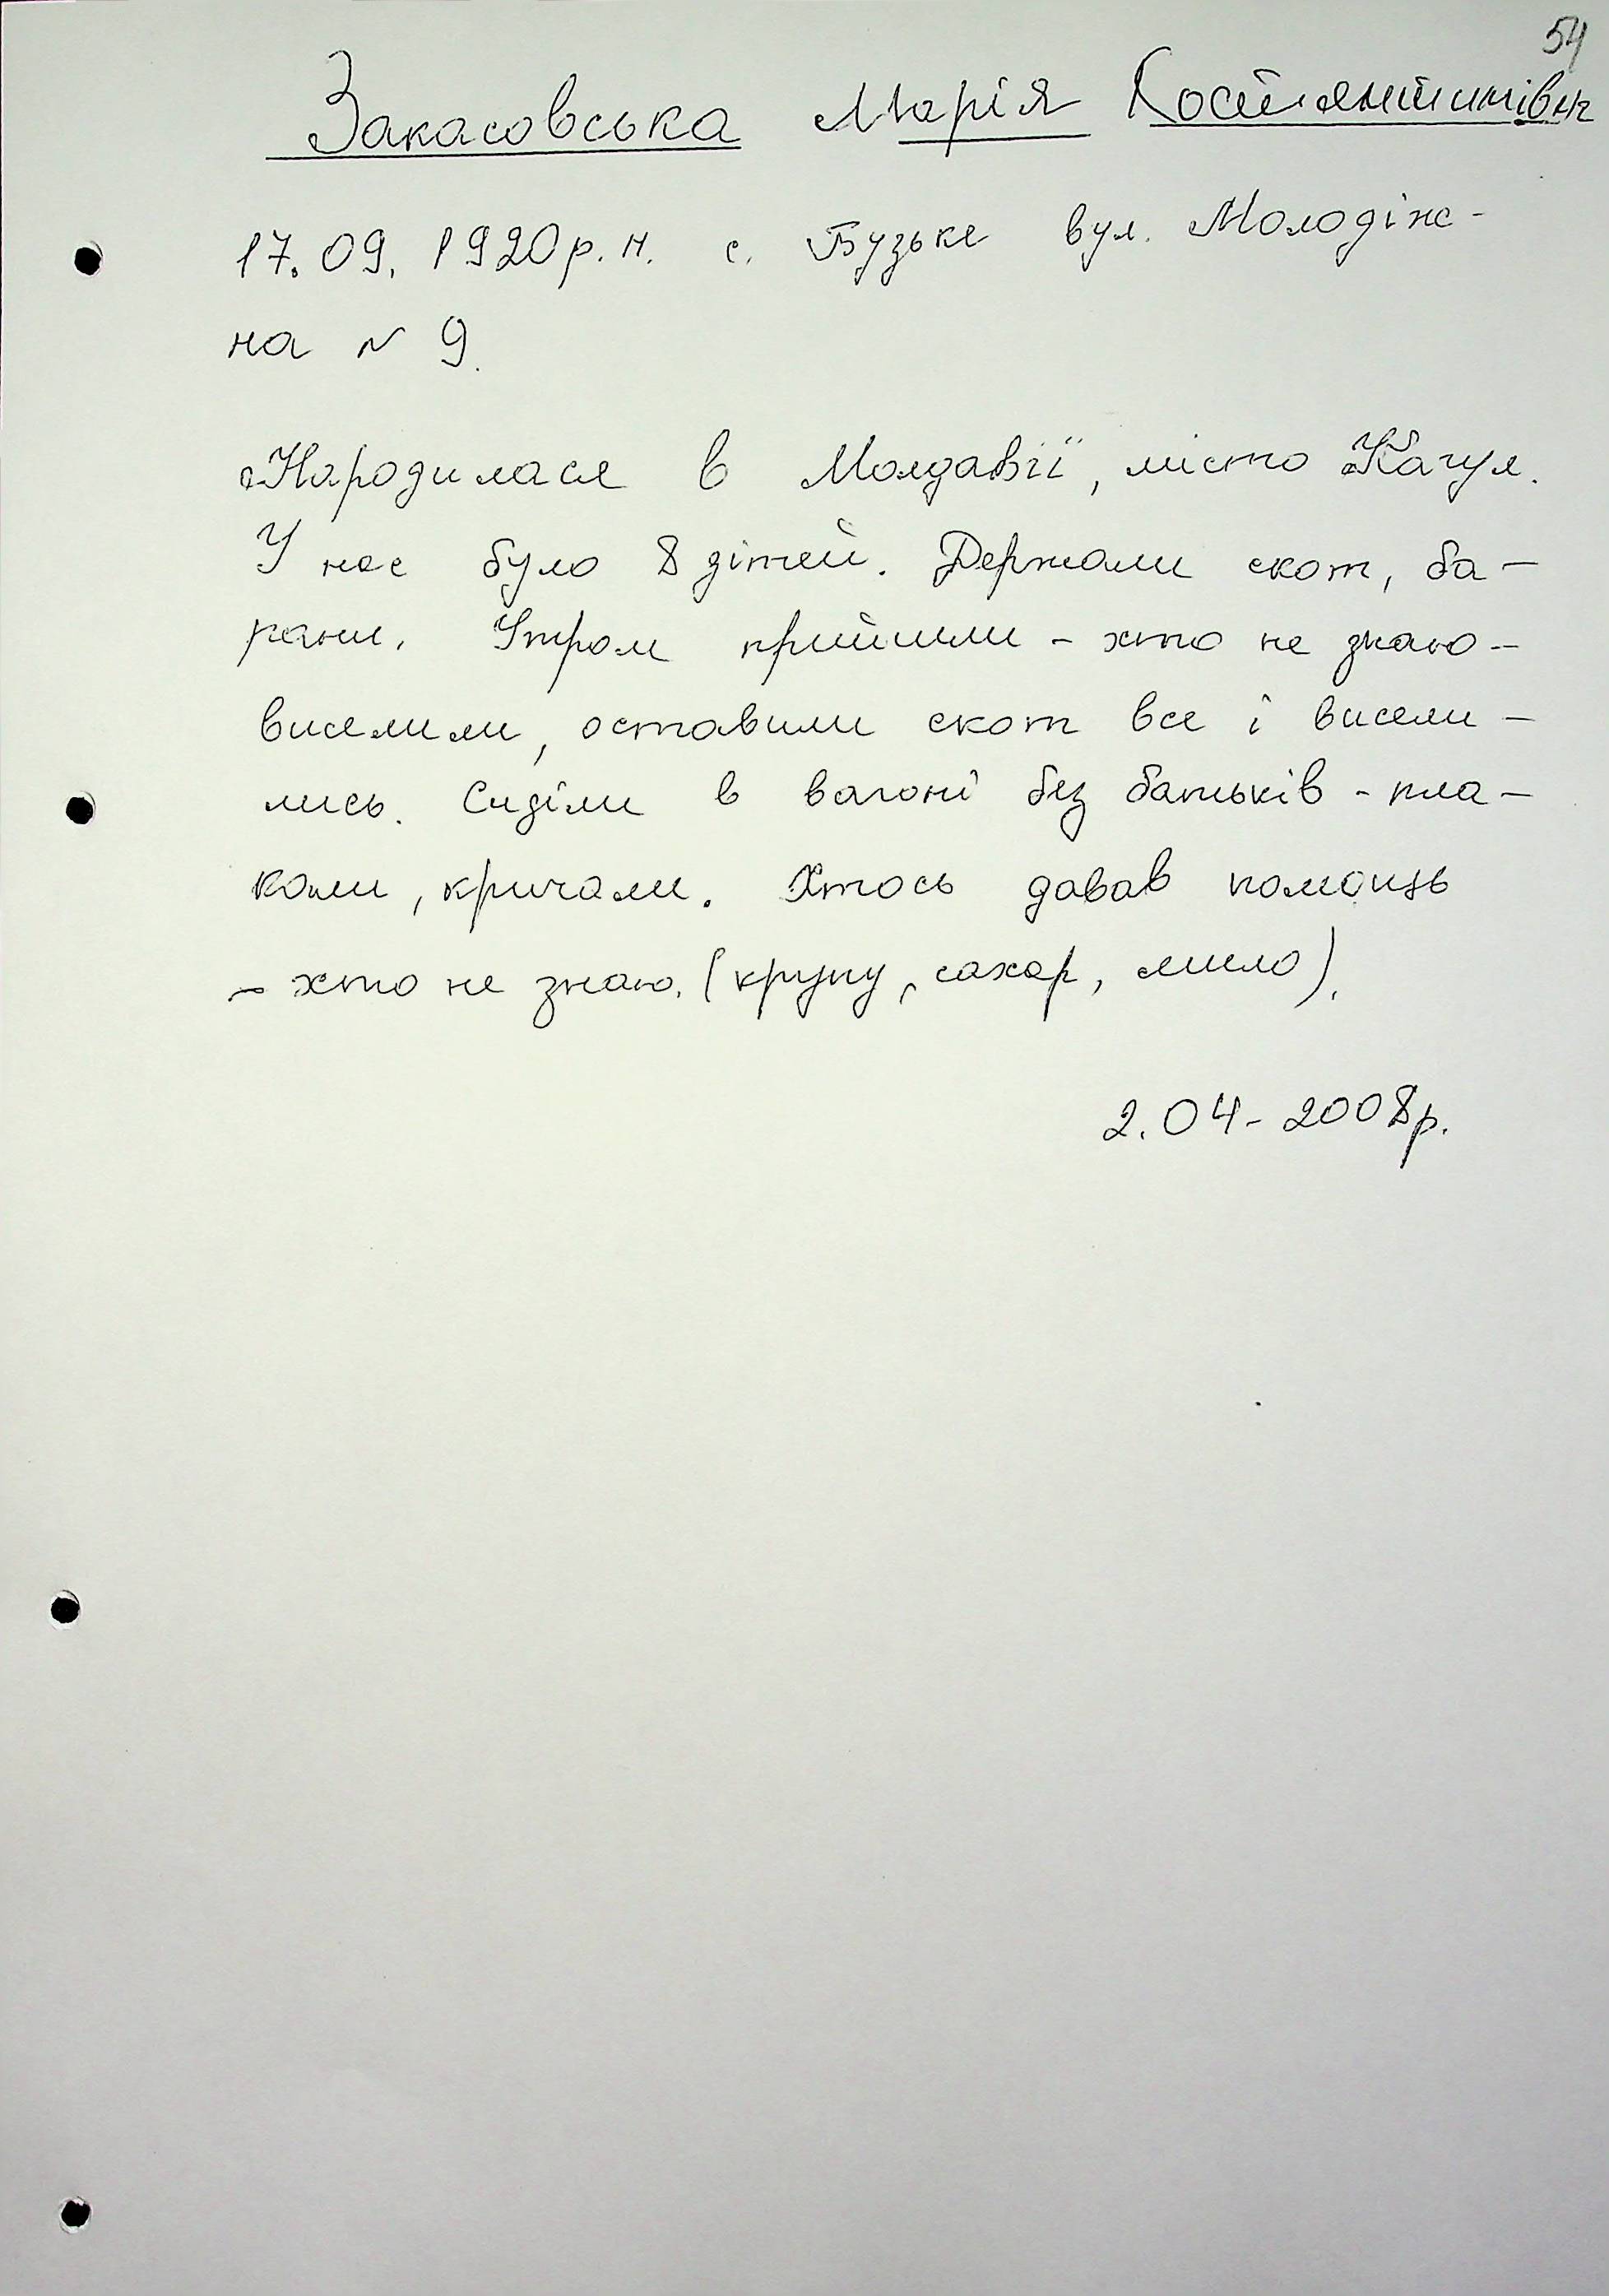 54
Закасовська Марія Костянтинівна
17.09.1920р.н. с. Бузьке вул. Молодіж-
на № 9.
Народилася в Молдавії, місто Кагул.
У нас було 8 дітей. Держали скот, ба-
рани. Утром прийшли - хто не знаю -
виселили, оставили скот все і висели-
лись. Сиділи в вагоні без батьків - пла-
кали, кричали. Хтось давав помощь
- хто не знаю. (крупу, сахар, мило).
2.04-2008р.